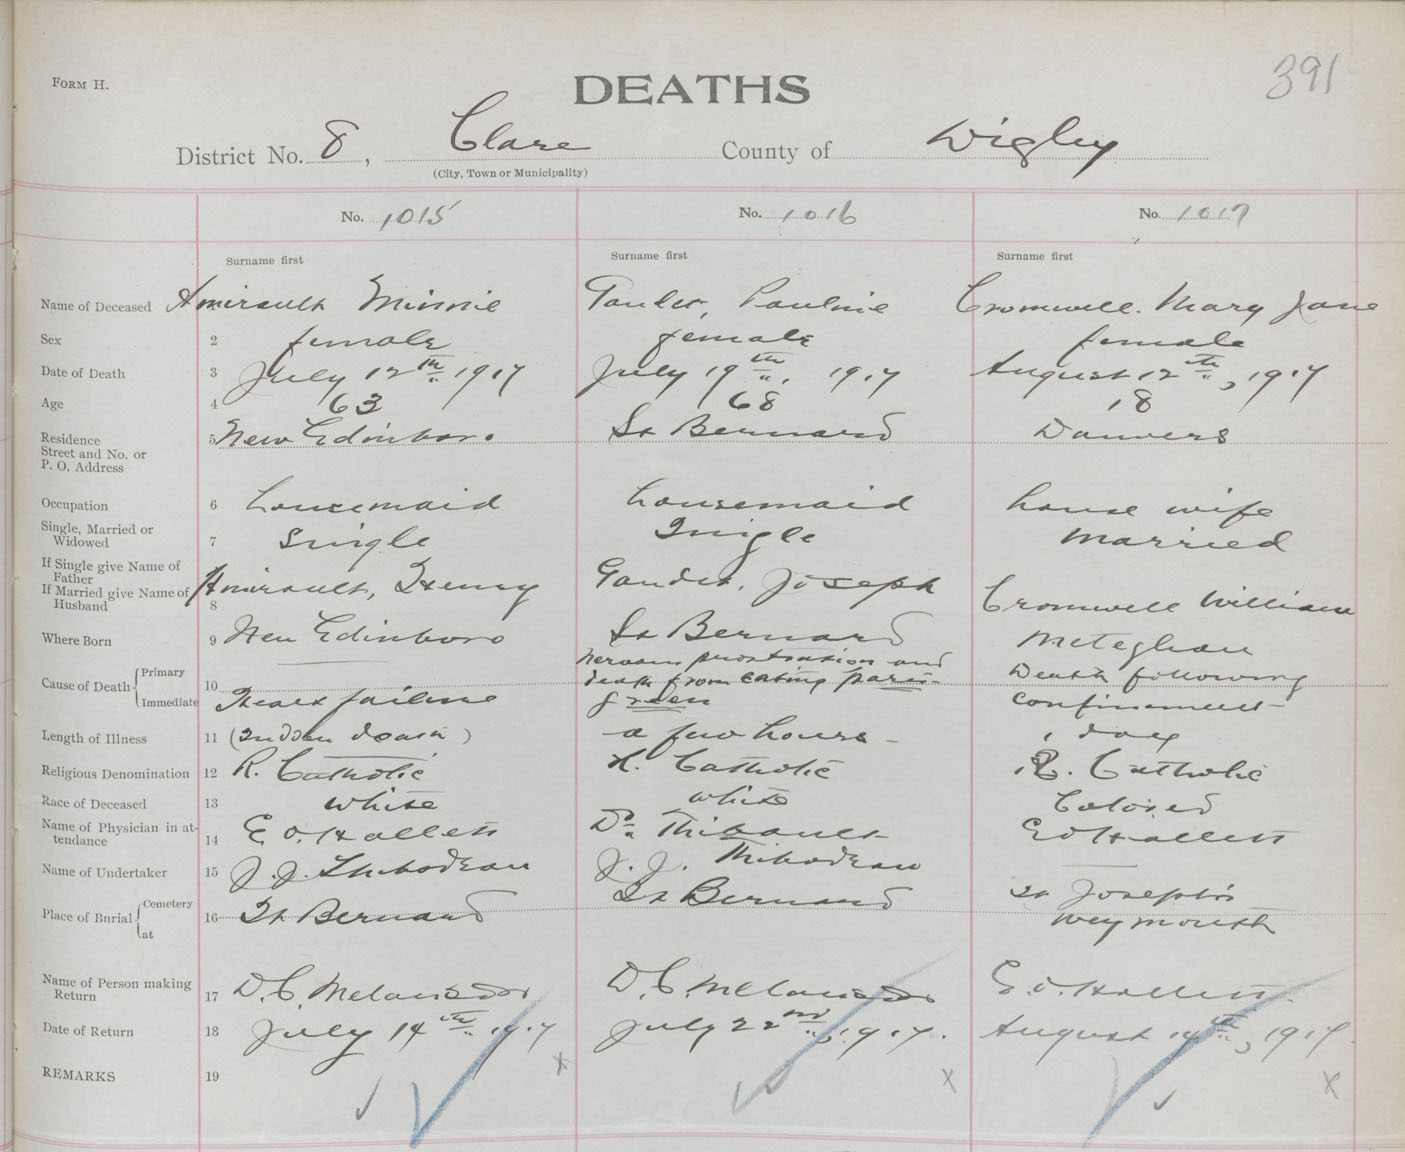 FORM H.
DEATHS
391
District No. 8, Clare County of Digby
(City, Town or Municipality)
No. 1015 No. 1016 No. 1017
Surname first Surname first Surname first
Name of Deceased 1 Amirault Minnie Gaudet, Pauline Cromwell. Mary Jane
Sex 2 female female female
Date of Death 3 July 12th 1917 July 19th, 1917 August 12th, 1917
Age 4 63 68 18
Residence
Street and No. or
P. O. Address
5 New Edinboro St Bernard Danvers
Occupation 6 housemaid housemaid house wife
Single, Married or
Widowed 7 Single Single Married
If Single give Name of
Father
If Married give Name of
Husband
8 Amirault, Henry Gaudet, Joseph Cromwell William
Where Born 9 New Edinboro St Bernard Meteghan
Cause of Death { Primary Immediate
10 Heart failure nervous prostration and death from eating paris-green Death following confinement
Length of Illness 11 (Sudden death) a few hours - 1 day
Religious Denomination 12 R. Catholic R. Catholic R. Catholic
Race of Deceased 13 white white Colored
Name of Physician in at-
tendance 14 E O. Hallett Dr. Thibault E O Hallett
Name of Undertaker 15 J. J. Thibodeau J. J. Thibodeau
Place of Burial { Cemetery at
16 St Bernard St Bernard St Joseph's Weymouth
Name of Person making
Return 17 D. C. Melanson D. C. Melanson E. O. Hallett.
Date of Return 18 July 14th 1917 July 22nd, 1917. August 14th, 1917.
REMARKS 19
x x x